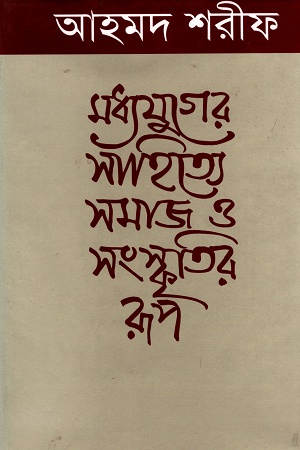 আহমদ শরীফ
মধ্যযুগের
সাহিত্যে
সমাজ ও
সংস্কৃতির
রূপ